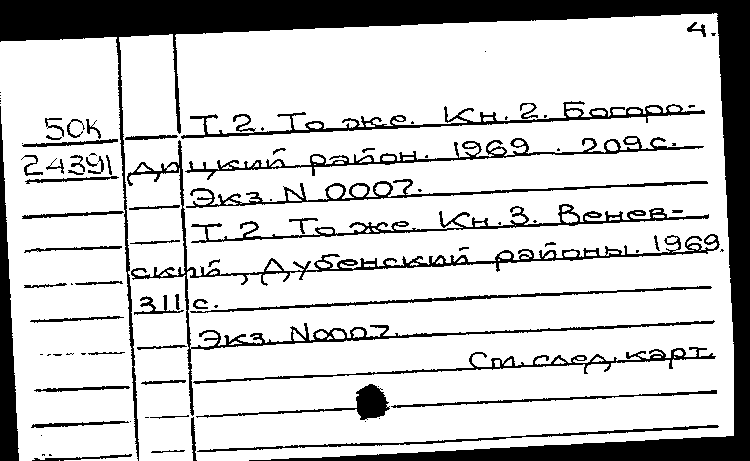 4.
50К Т. 2. То же. Кн. 2. Богоро-
24391 дицкий район. 1969. 209 с.
Экз. N 0007.
Т. 2. То же. Кн. 3. Венев-
ский, Дубенский районы. 1969.
311 с.
Экз. N0007.
См. след. карт.